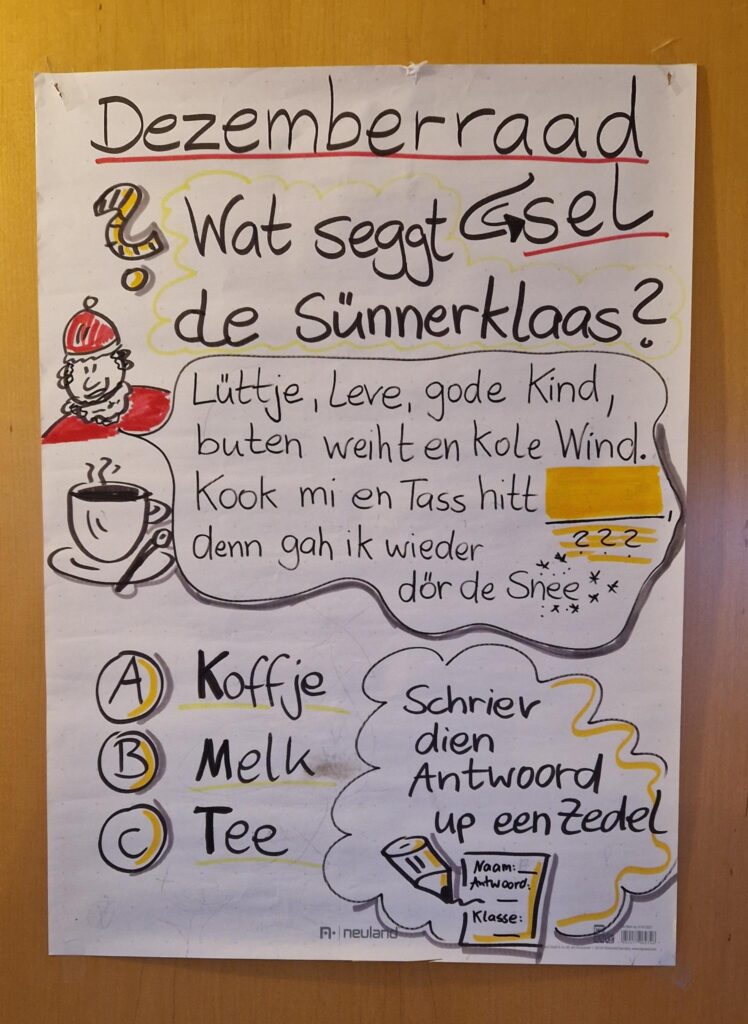 Dezemberraad
sel
Wat seggt
de Sünnerklaas?
Lüttje, leve, gode Kind,
buten weiht en kole Wind.
Kook mi en Tass hitt
???,
denn gah ik wieder
dör de Snee
A Koffje
B Melk
C Tee
Schriev
dien
Antwoord
up een Zedel
Naam:
Antwoord:
Klasse:
neuland